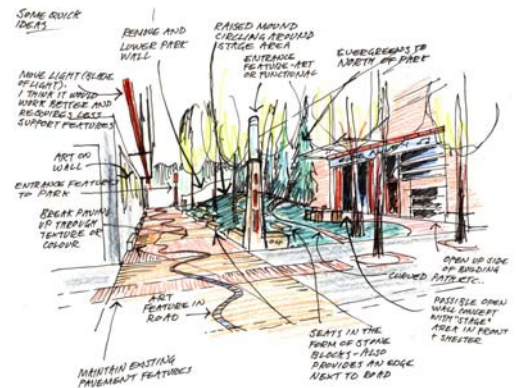 SOME QUICK
IDEAS
REMOVE AND
LOWER PARK
WALL
RAISED MOUND
CIRCLING AROUND
STAGE AREA
ENTRANCE
FEATURE-ART
OR FUNCTIONAL
EVERGREENS TO
NORTH OF PARK
MOVE LIGHT (BLADE
OF LIGHT).
I THINK IT WOULD
WORK BETTER AND
REQUIRES LESS
SUPPORT FEATURES
ART ON
WALL
ENTRANCE FEATURE
TO PARK
BREAK PAVING
UP THROUGH
TEXTURE OR
COLOUR
ART
FEATURE IN
ROAD
MAINTAIN EXISTING
PAVEMENT FEATURES
SEATS IN THE
FORM OF STONE
BLOCKS - ALSO
PROVIDES AN EDGE
NEXT TO ROAD
CURVED PATH ETC..
OPEN UP SIDE
OF BUILDING
POSSIBLE OPEN
WALL CONCEPT
WITH "STAGE"
AREA IN FRONT
+ SHELTER